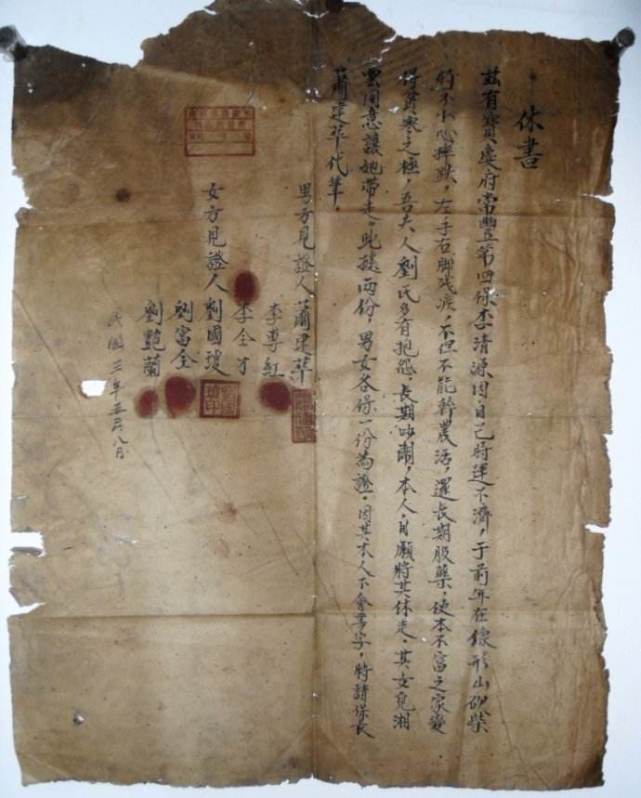 休書
茲有寶慶府常豐第四保李清源因自己時運不濟，于前年在線形山砍柴
時不小心摔跌，左手右脚残疾，不但不能幹農活，還長期服藥，使本不富之家變
得貧寒之極，吾夫人劉氏多有抱怨，長期吵鬧，本人自願將其休走。其女兒湘
雲同意讓她帶走。此據兩份，男女各保一份為證。因其本人不會寫字，特請保長
蕭建華代筆。
男方見證人蕭建華
李尊紅
李全才
女方見證人劉國瓊
劉富全
劉艷蘭
民國三年五月八日